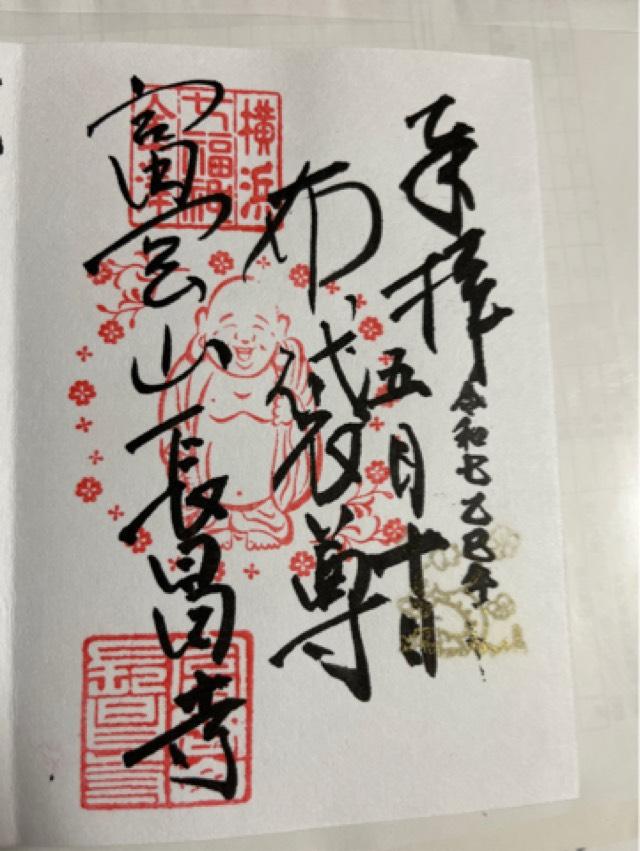 奉拝
令和七乙巳年
五月十日
布袋尊
富岡山長昌寺
横浜
七福神
金澤